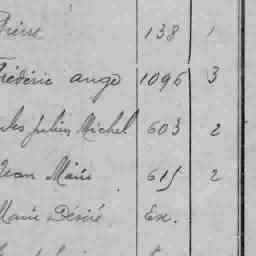 Pierre 138 1
Frédéric ange 1096 3
Jules Julien Michel 603 2
Jean Marie 615 2
Marie Désiré Ex.